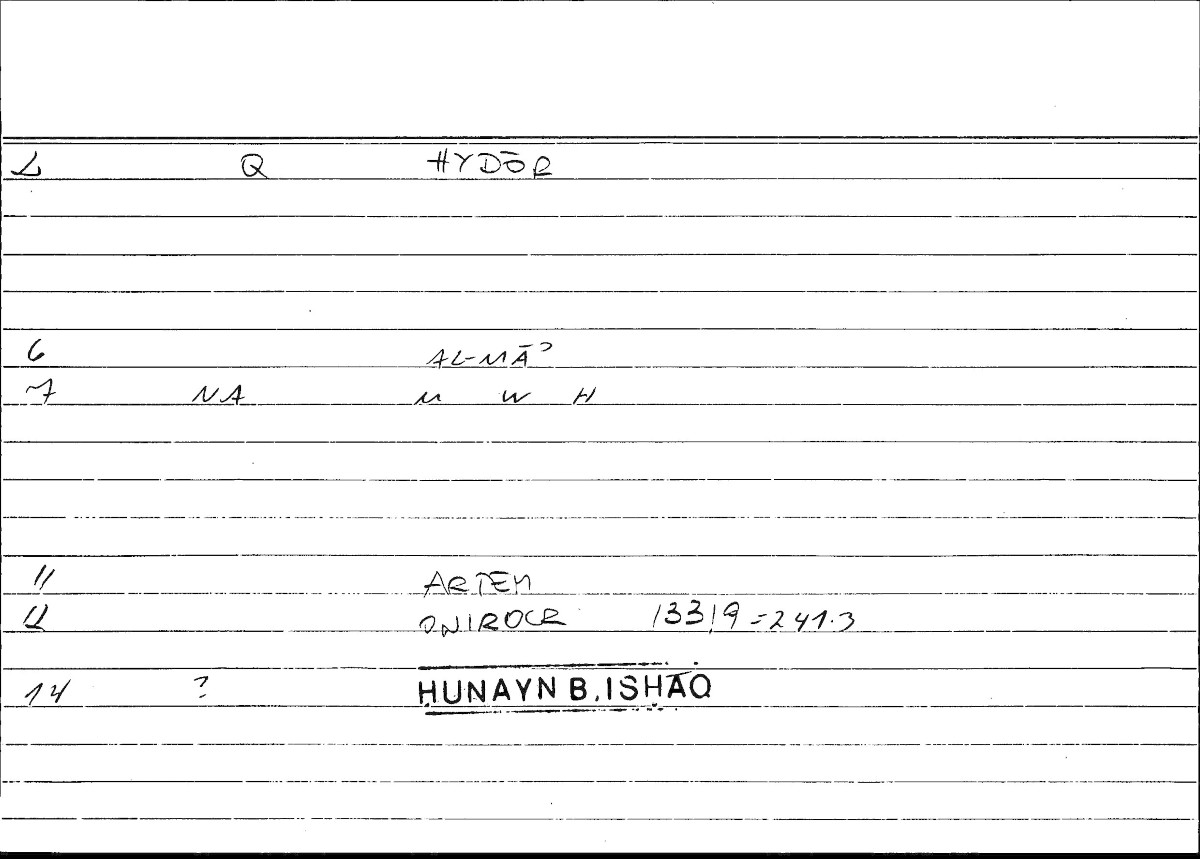 1 Q HYDŌR
6 AL-MĀʾ
7 NA M W H
11 ARTEM
12 ONIROCR 133,9=241.3
14 ? ḤUNAYN B. ISḤĀQ